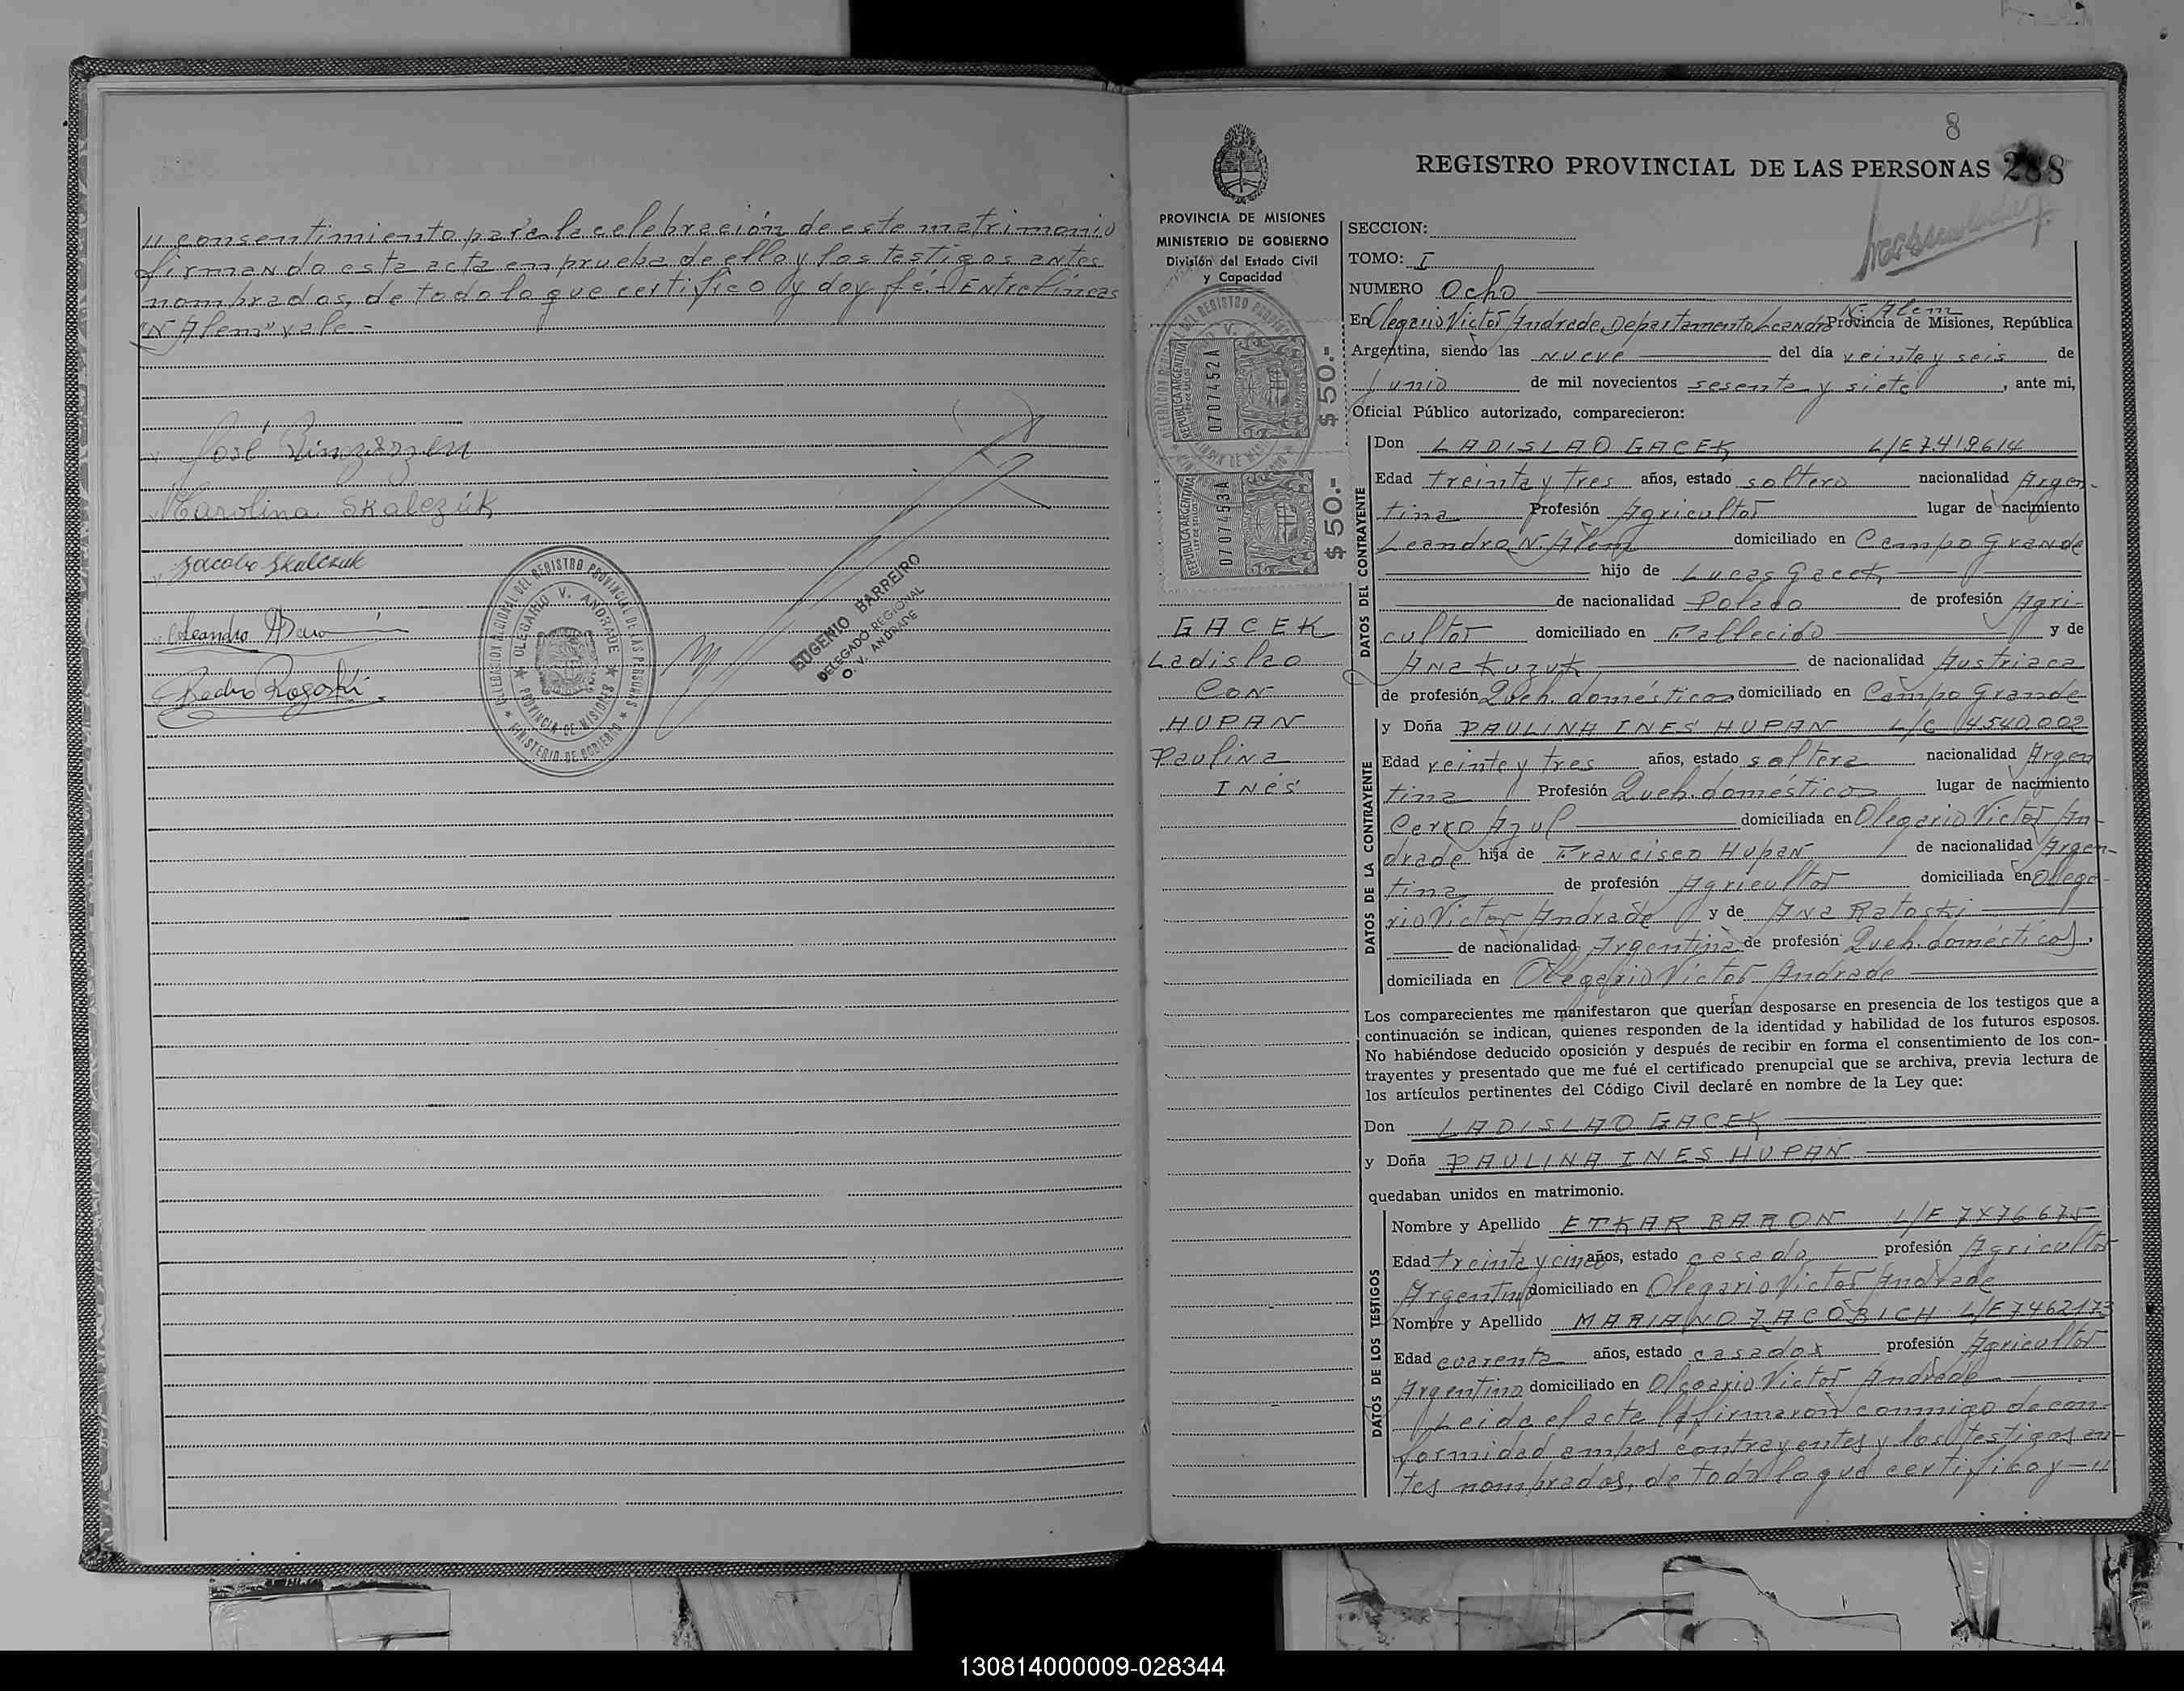 " consentimiento para la celebración de este matrimonio
firmando esta acta en prueba de ello y los testigos antes
nombrados, de todo lo que certifico y doy fé.- Entrelíneas
"N. Alem" vale.-
José
Carolina Skalczúk
Jacobo Skalczuk
Leandro
Pedro Rogoski
DELEGACION REGIONAL DEL REGISTRO PROVINCIAL DE LAS PERSONAS
OLEGARIO V. ANDRADE
PROVINCIA DE MISIONES
MINISTERIO DE GOBIERNO
EUGENIO BARREIRO
DELEGADO REGIONAL
O. V. ANDRADE
8
REGISTRO PROVINCIAL DE LAS PERSONAS 288
PROVINCIA DE MISIONES
MINISTERIO DE GOBIERNO
División del Estado Civil
y Capacidad
REPUBLICA ARGENTINA
0707452A
$50.-
REPUBLICA ARGENTINA
0707453A
$50.-
GACEK
Ladislao
CON
HUPAN
Paulina
Inés
SECCION:
TOMO: I
NUMERO Ocho
N. Alem
En Olegario Victor Andrade, Departamento Leandro Provincia de Misiones, República
Argentina, siendo las nueve del día veinte y seis de
Junio de mil novecientos sesenta y siete, ante mi,
Oficial Público autorizado, comparecieron:
DATOS DEL CONTRAYENTE
Don LADISLAO GACEK L/E 7.419614
Edad treinta y tres años, estado soltero nacionalidad Argen-
tina Profesión Agricultor lugar de nacimiento
Leandro N. Alem domiciliado en Campo Grande
hijo de Lucas Gacek
de nacionalidad Polaco de profesión Agri-
cultor domiciliado en Fallecido y de
Ana Kuzuk de nacionalidad Austriaca
de profesión Queh. domésticos domiciliado en Campo Grande
DATOS DE LA CONTRAYENTE
y Doña PAULINA INES HUPAN L/C 4540.002
Edad veinte y tres años, estado soltera nacionalidad Argen
tina Profesión Queh. domésticos lugar de nacimiento
Cerro Azul domiciliada en Olegario Victor An-
drade hija de Francisco Hupan de nacionalidad Argen-
tina de profesión Agricultor domiciliada en Olega-
rio Victor Andrade y de Ana Ratoski
de nacionalidad Argentina de profesión Queh. domésticos,
domiciliada en Olegario Victor Andrade
Los comparecientes me manifestaron que querían desposarse en presencia de los testigos que a
continuación se indican, quienes responden de la identidad y habilidad de los futuros esposos.
No habiéndose deducido oposición y después de recibir en forma el consentimiento de los con-
trayentes y presentado que me fué el certificado prenupcial que se archiva, previa lectura de
los artículos pertinentes del Código Civil declaré en nombre de la Ley que:
Don LADISLAO GACEK
y Doña PAULINA INES HUPAN
quedaban unidos en matrimonio.
DATOS DE LOS TESTIGOS
Nombre y Apellido ETKAR BARON L/E 7476675
Edad treinta y cinco años, estado casado profesión Agricultor
Argentino domiciliado en Olegario Victor Andrade
Nombre y Apellido MARIANO ZACOBICH L/E 7462173
Edad cuarenta años, estado casado profesión Agricultor
Argentino domiciliado en Olegario Victor Andrade
Leida el acta la firmaron conmigo de con-
formidad ambos contrayentes y los testigos an-
tes nombrados, de todo lo que certifico y - "
130814000009-028344